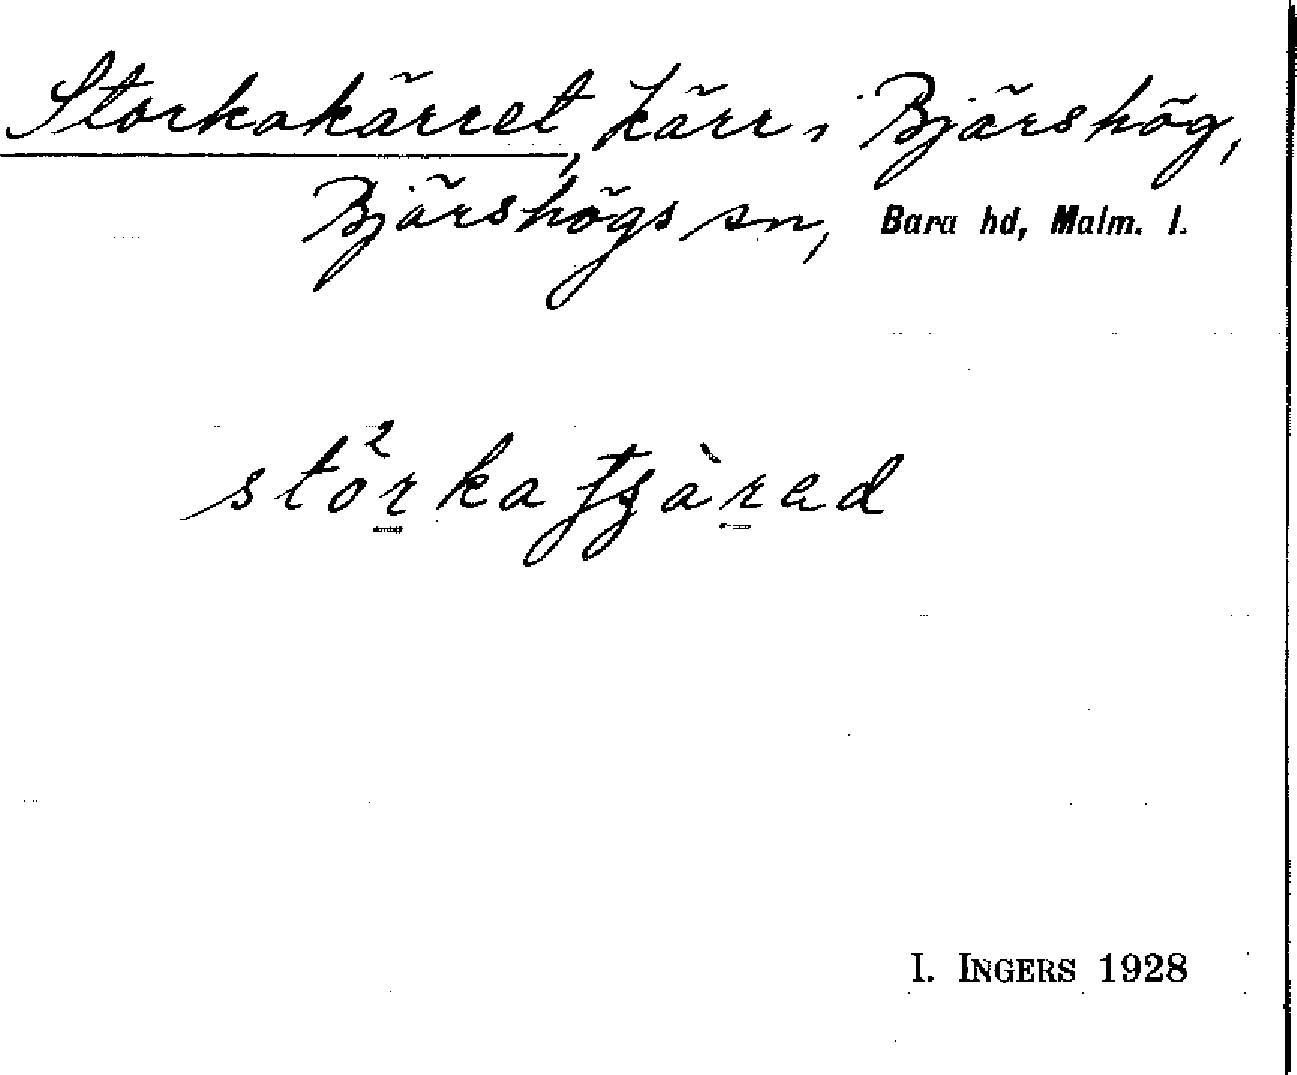 Storkakärret, kärr i Bjärshög,
Bjärshögs sn, Bara hd, Malm. l.
I. INGERS 1928